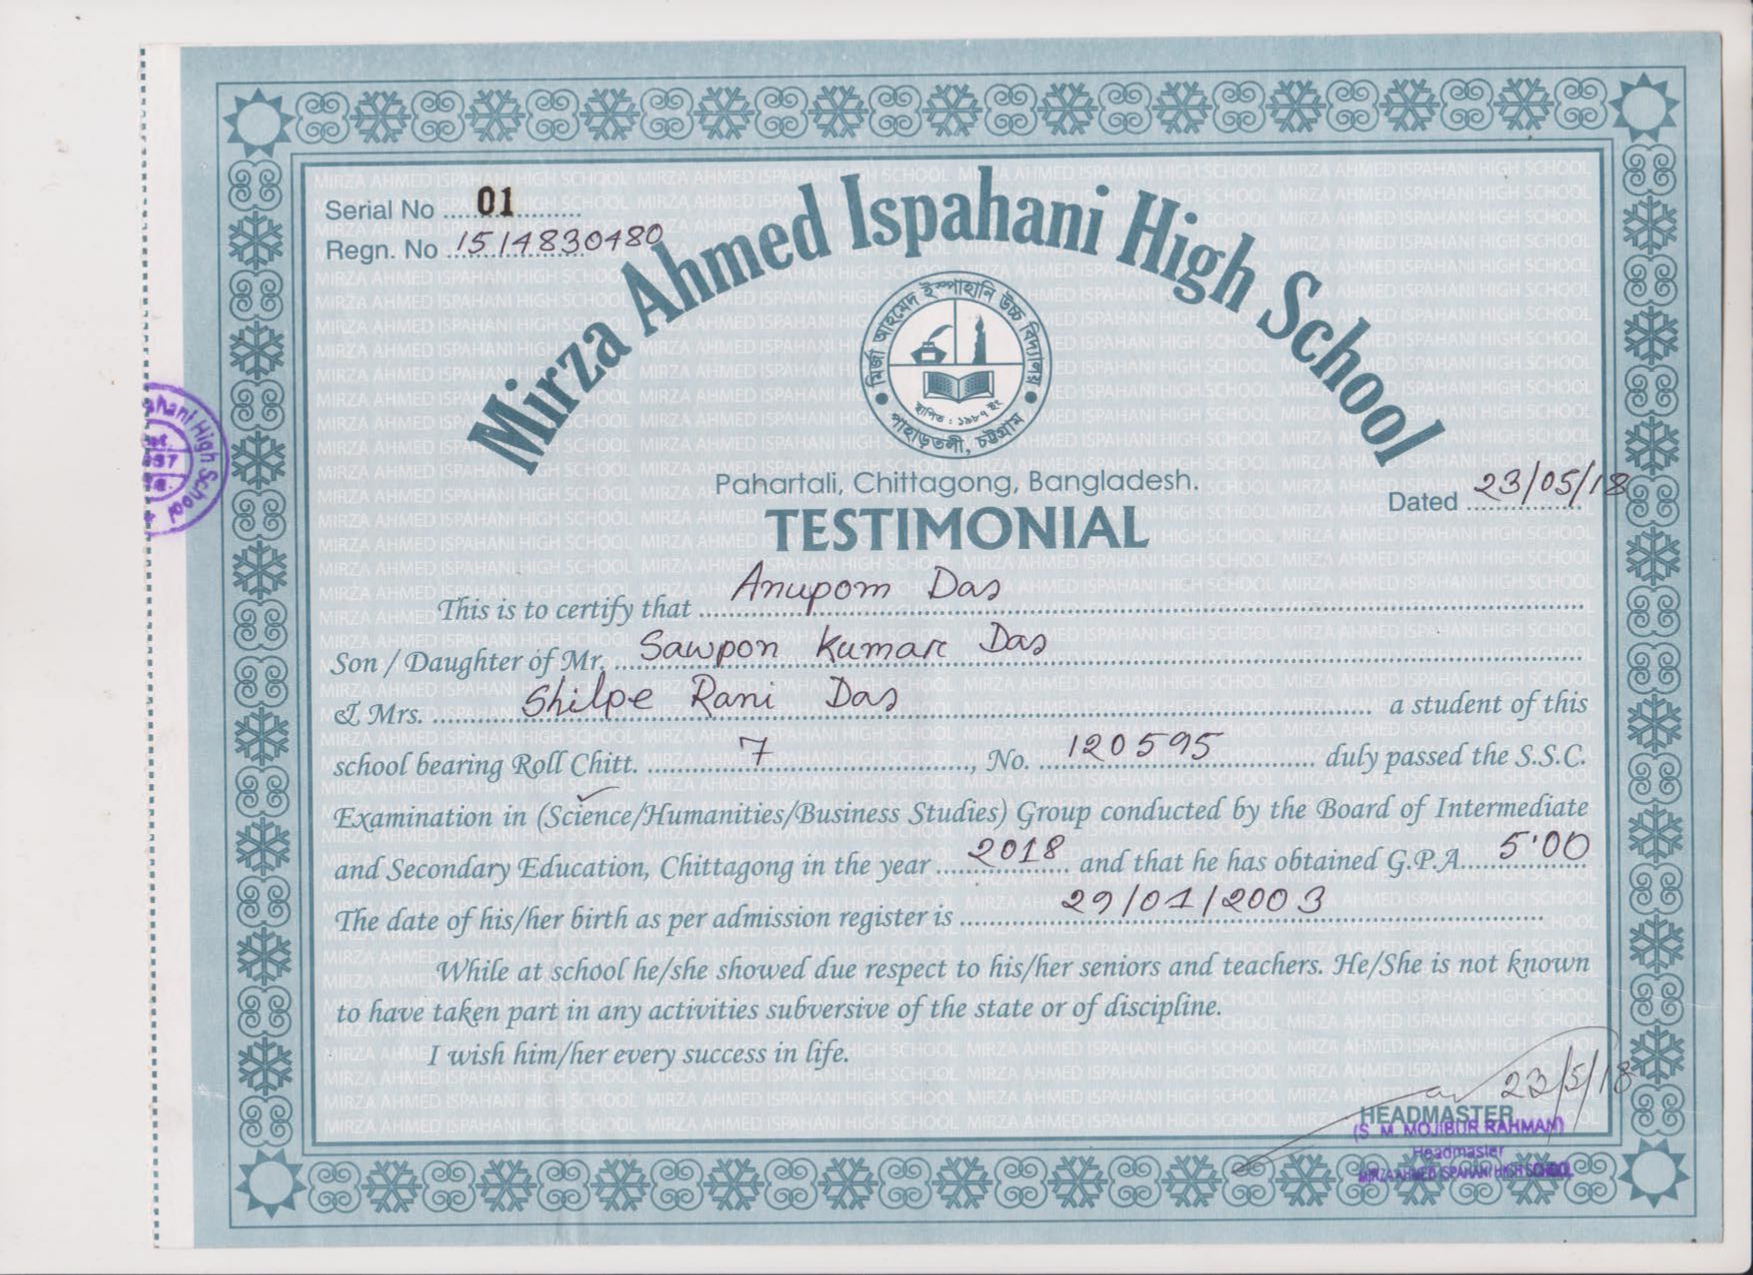 Serial No ..... 01 .........
Regn. No 1514830480
Mirza Ahmed Ispahani High School
মির্জা আহমেদ ইস্পাহানি উচ্চ বিদ্যালয়
স্থাপিত : ১৯৮৭ ইং
পাহাড়তলী, চট্টগ্রাম
Pahartali, Chittagong, Bangladesh.
Dated 23/05/18
TESTIMONIAL
This is to certify that Anupom Das
Son / Daughter of Mr. Sawpon Kumar Das
& Mrs. Shilpe Rani Das a student of this
school bearing Roll Chitt. 7, No. 120595 duly passed the S.S.C.
Examination in (Science/Humanities/Business Studies) Group conducted by the Board of Intermediate
and Secondary Education, Chittagong in the year 2018 and that he has obtained G.P.A. 5.00
The date of his/her birth as per admission register is 29/01/2003
While at school he/she showed due respect to his/her seniors and teachers. He/She is not known
to have taken part in any activities subversive of the state or of discipline.
I wish him/her every success in life.
23/5/18
HEADMASTER
(S. M. MOJIBUR RAHMAN)
Headmaster
MIRZA AHMED ISPAHANI HIGH SCHOOL